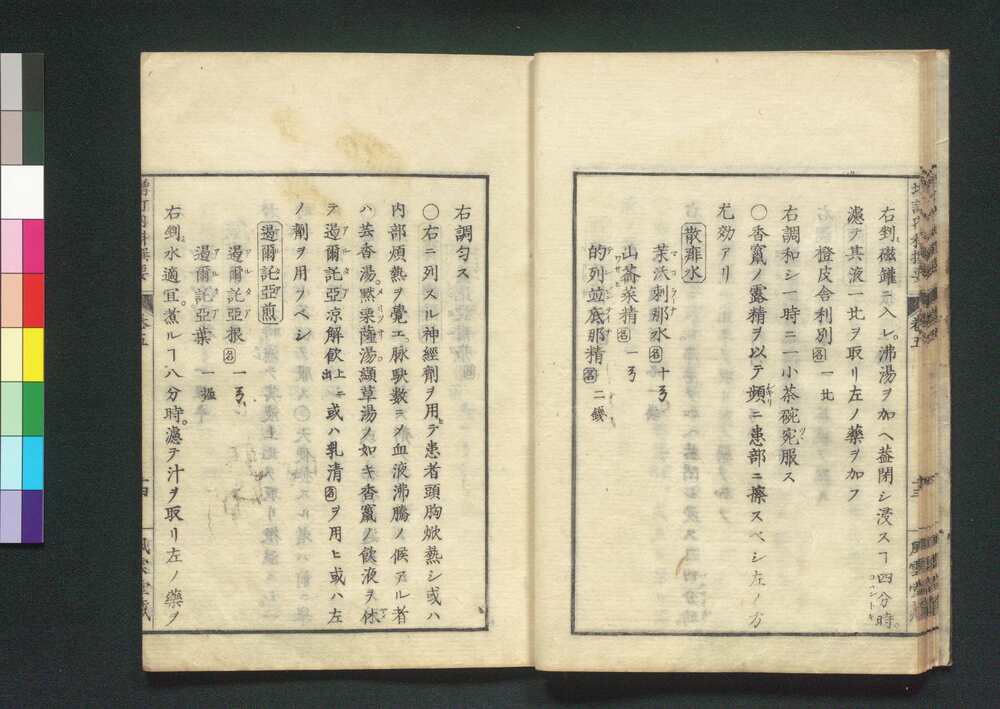 右剉磁罐ニ入レ沸湯ヲ加ヘ蓋閉シ浸スヿ四分時。
濾テ其液一北ヲ取リ左ノ藥ヲ加フ
橙皮舎利別 名 一北
右調和シ一時ニ一小茶碗宛服ス
〇香竄ノ露精ヲ以テ頻ニ患部ニ擦スベシ左ノ方
尤効アリ
散痱水
茉沃刺那水 名 十ゟ
山葵菜精 名 一ゟ
的列並底那精 名 二錢
右調勻ス
〇右ニ列スル神經劑ヲ用テ患者頭胸焮熱シ或ハ
内部煩熱ヲ覺エ脉駃數ニシ血液沸騰ノ候アル者
ハ芸香湯。黙栗薩湯。纈草湯ノ如キ香竄ノ飲液ヲ休
テ遏爾託亞凉解飲 上ニ出 或ハ乳清 名 ヲ用ヒ或ハ左
ノ劑ヲ用フベシ
遏爾託亞煎
遏爾託亞根 名 一ゟ
遏爾託亞葉 一握
右剉水適宜。煮ルヿ八分時。濾テ汁ヲ取リ左ノ藥ヲ